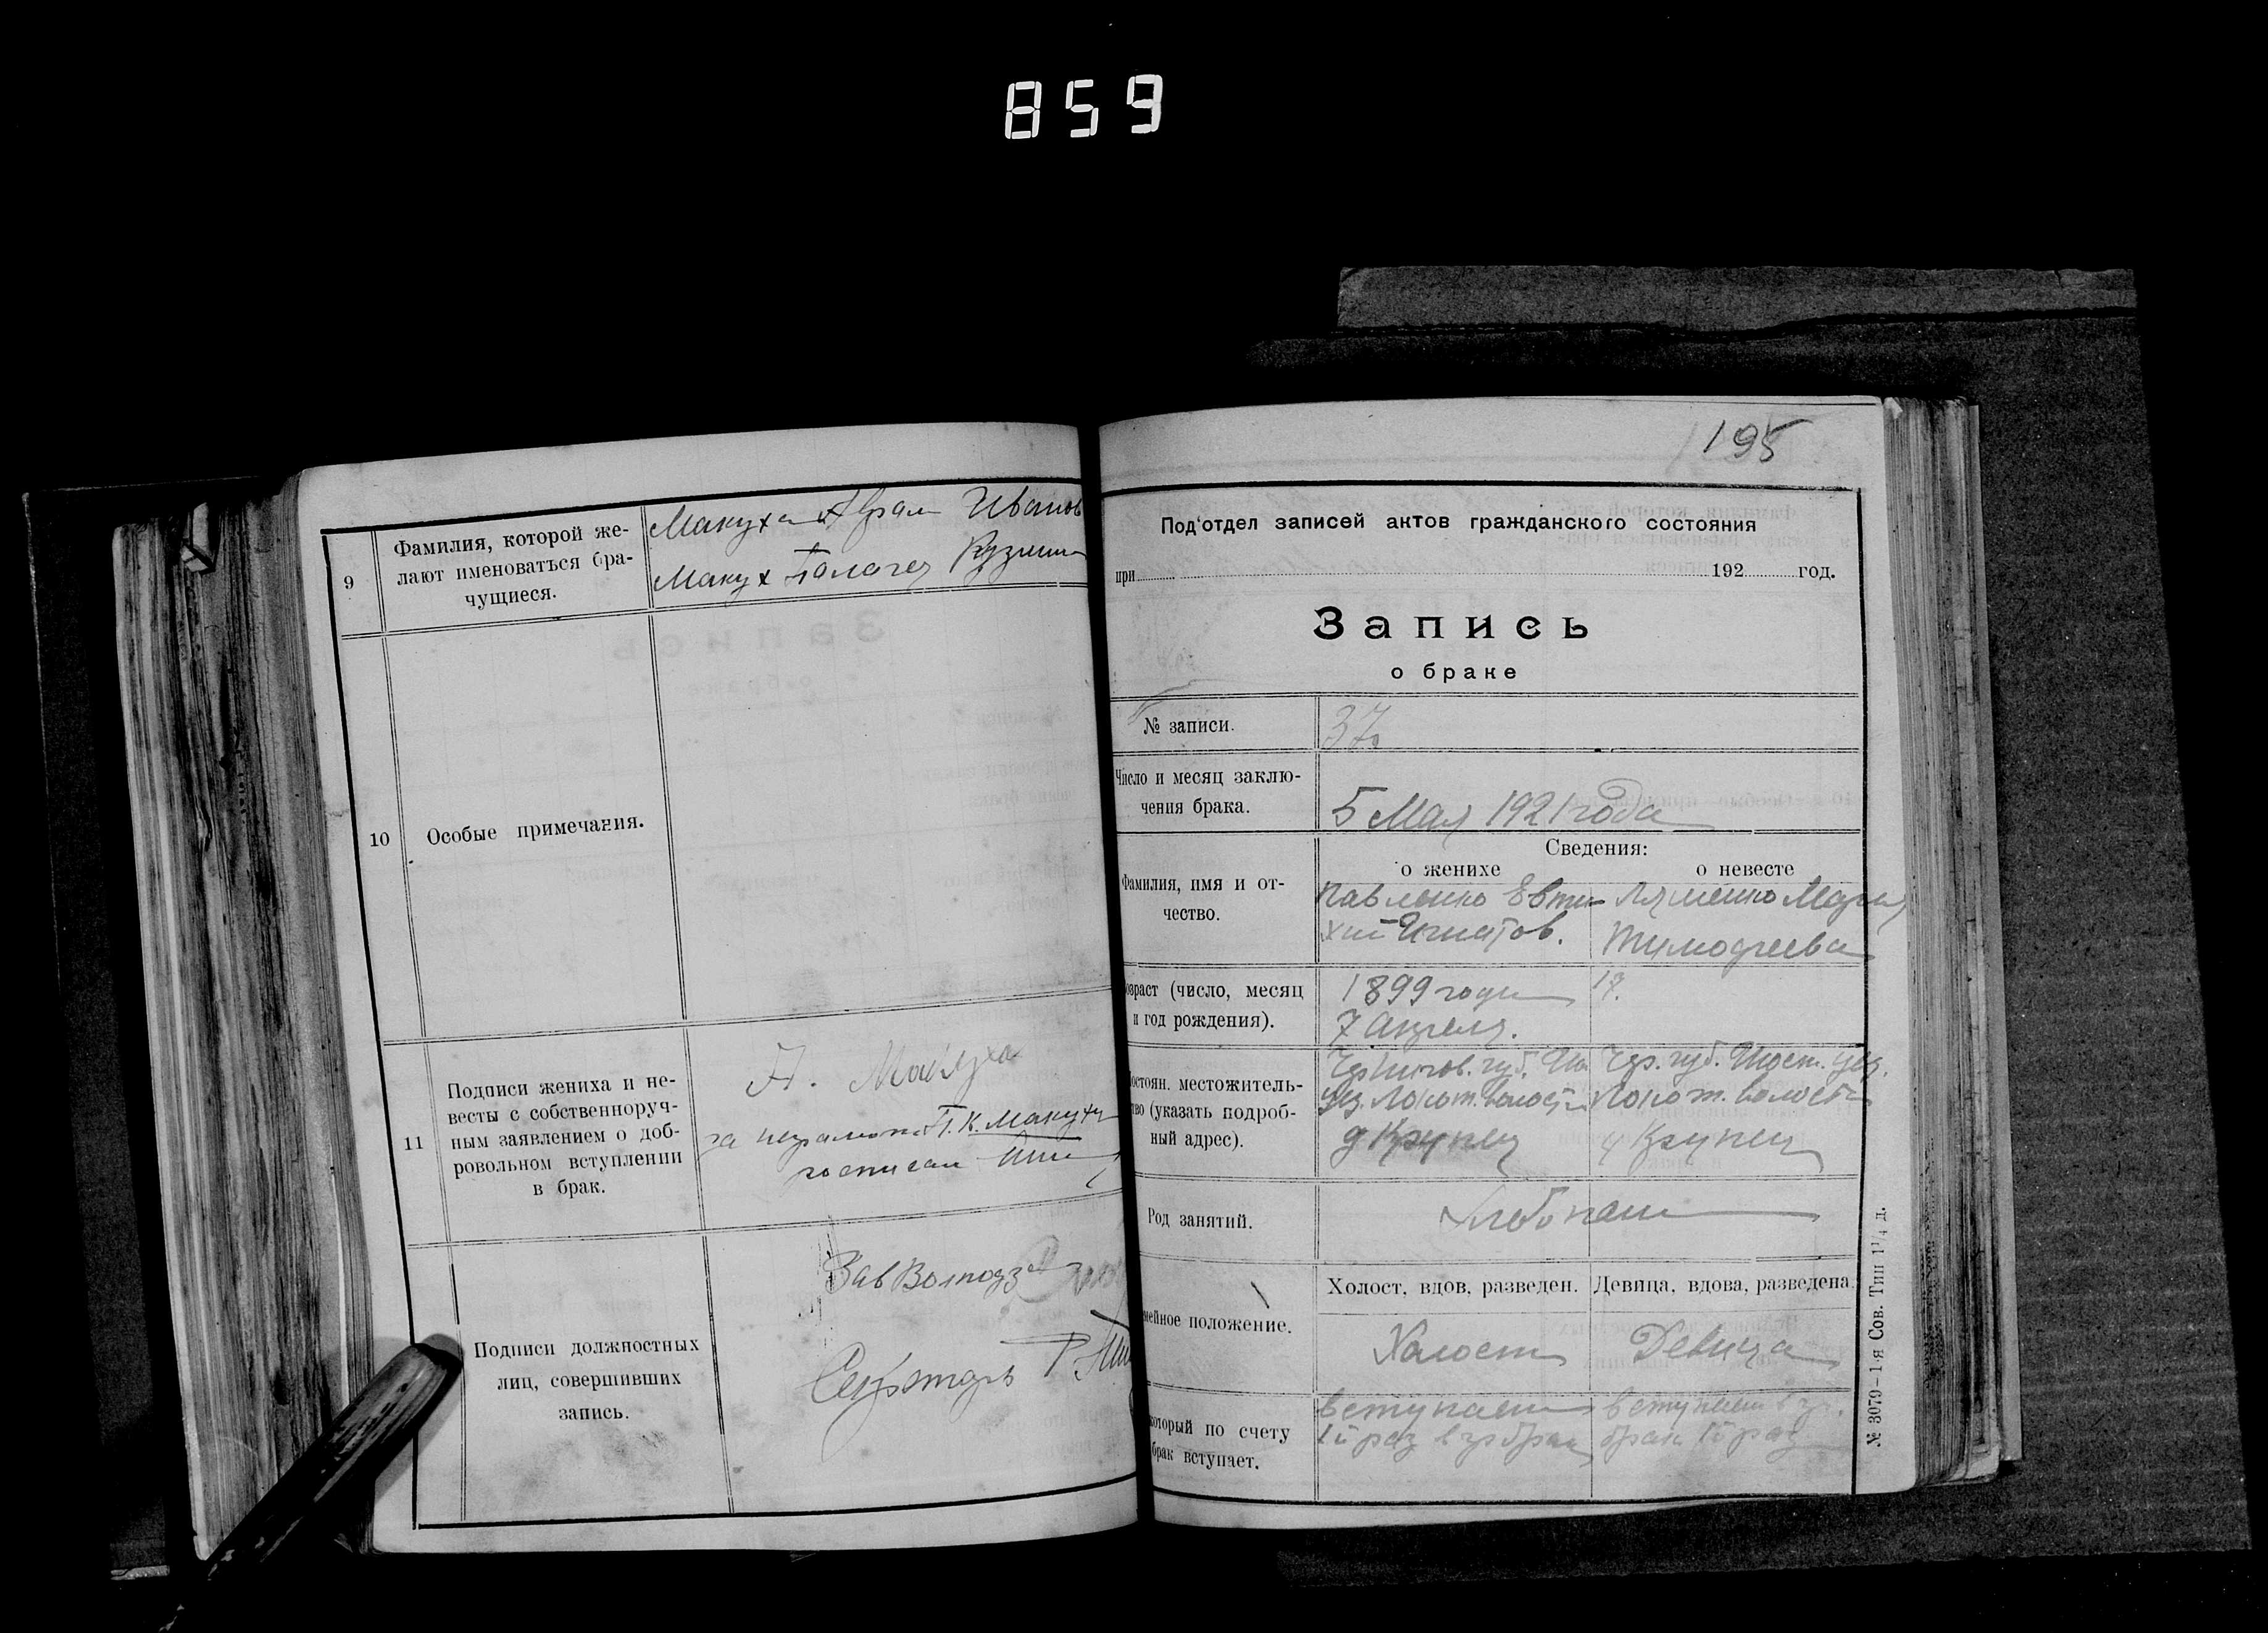 859
9
Фамилия, которой же-
лают именоваться бра-
чущиеся.
Макуха Аврам Иванов
Макух Палагея Кузмин
10
Особые примечания.
11
Подписи жениха и не-
весты с собственноруч-
ным заявлением о доб-
ровольном вступлении
в брак.
А. Макуха
за неграмотн П. К. Макуху
росписал
Подписи должностных
лиц, совершивших
запись.
Зав
Секретарь
195
Под'отдел записей актов гражданского состояния
при 192 год.
Запись
о браке
№ записи.
37
Число и месяц заклю-
чения брака.
5 Мая 1921 года
Сведения:
о женихе
о невесте
Фамилия, имя и от-
чество.
Павленко Евти-
хий Игнатов.
Мария
Тимофеева
озраст (число, месяц
и год рождения).
1899 года
7 Апреля.
17.
остоян. местожитель-
тво (указать подроб-
ный адрес).
Чернигов. губ.
уез. Локот. волости
д Крупец
Чер. губ. Шост. уез.
Локот. волости
Крупец
Род занятий.
Хлебопаш
мейное положение.
Холост, вдов, разведен.
Девица, вдова, разведена.
Холост
Девица
который по счету
брак вступает.
вступает
1й раз в гр брак
вступает в гр.
брак 1й раз
№ 3079–1-я Сов. Тип 1¹/₄ д.